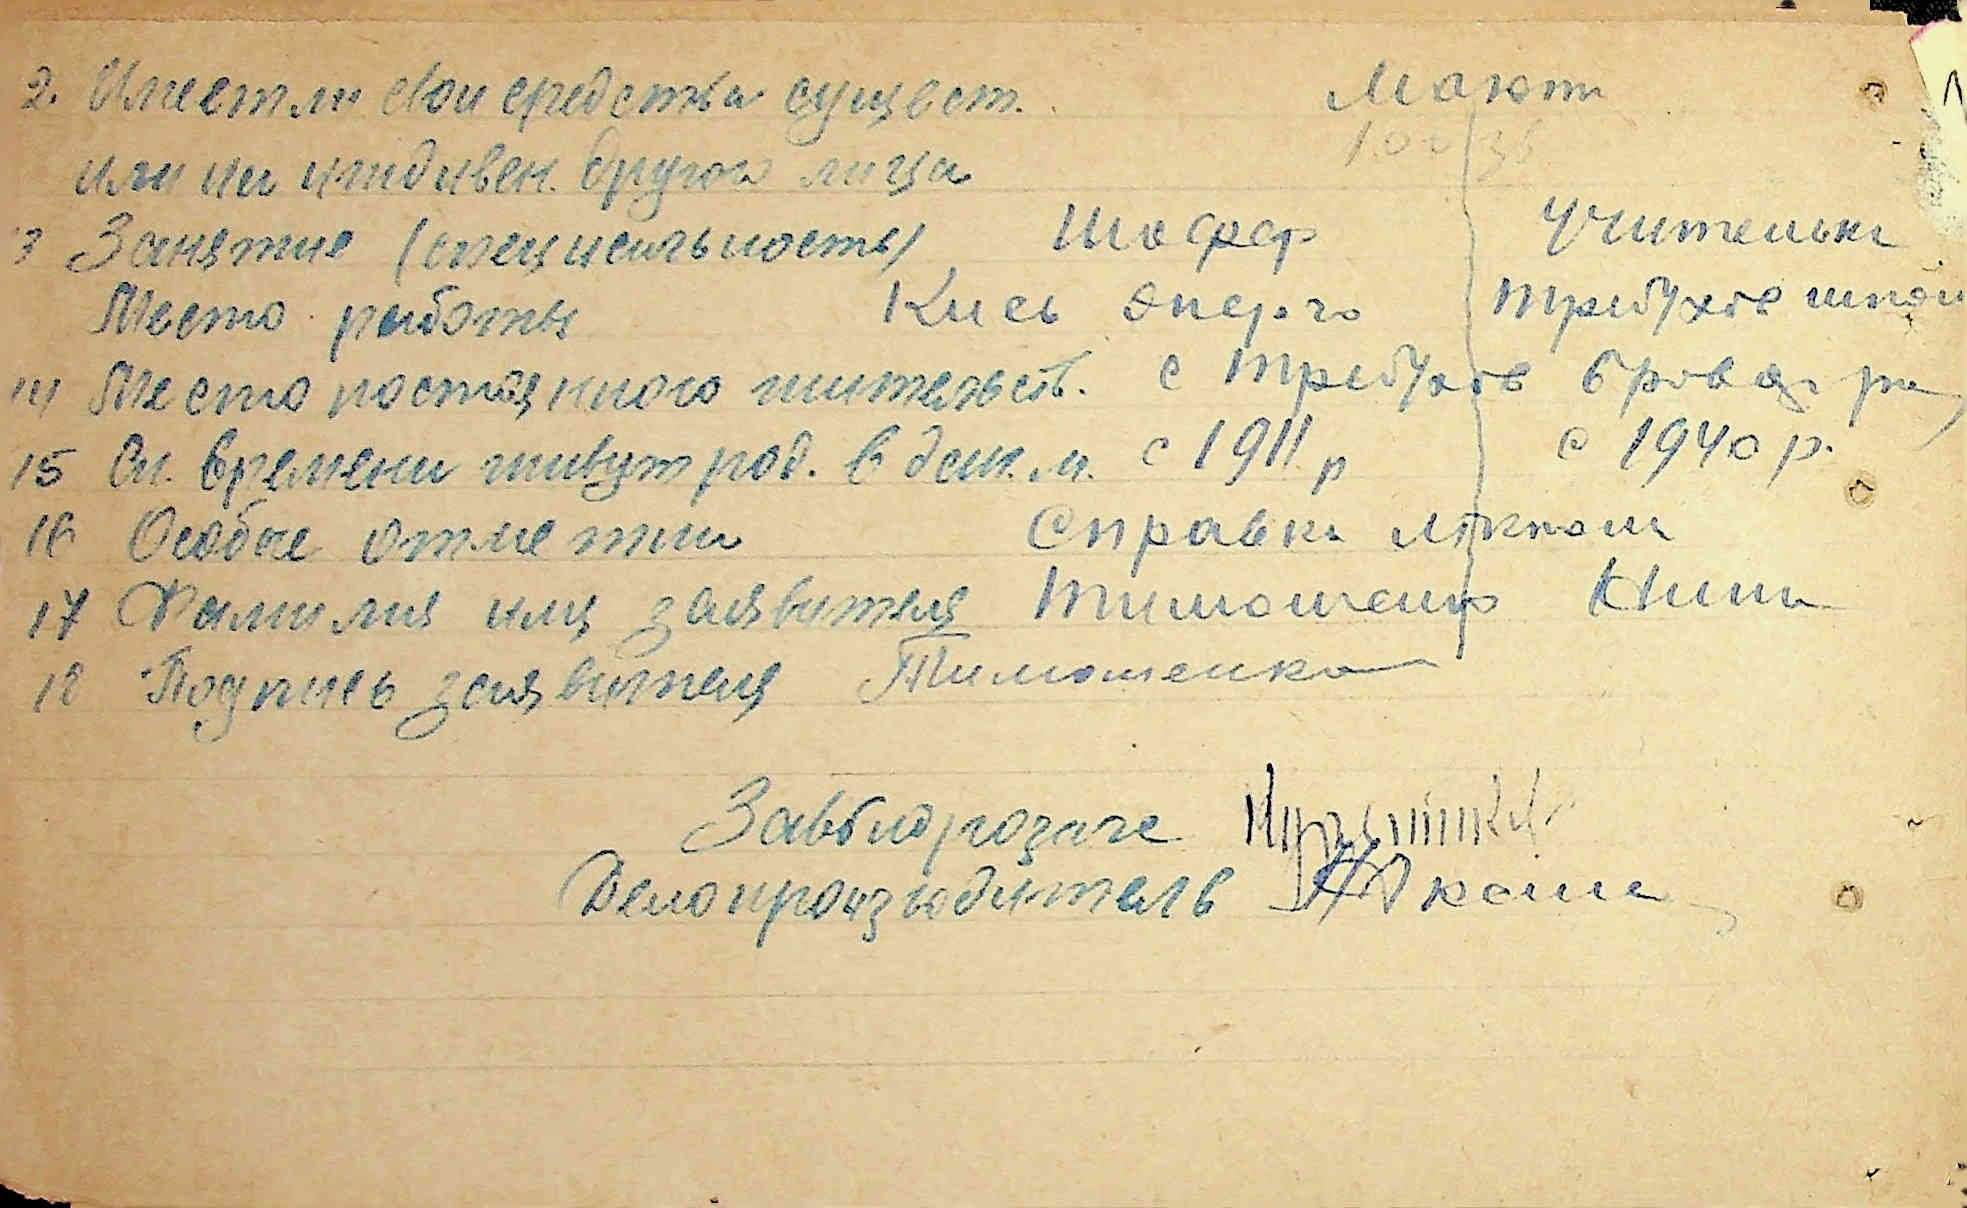 2. Имеет ли свои средства сущест. Мают
или на иждивен. другого лица
3 Занятие (специальность) Шофер учителька
Место работы Киев енерго Требухов школи
14 Место постоянного жительств. с Требухов Бровар. р
15 Ск. времени живут род. в дан. м. с 1911 р с 1940 р.
16 Особые отметки Справка лікпом
17 Фамилия имя заявителя Тимошенко Нина
18 Подпись заявителя Тимошенко
Завбюро загс
Делопроизводитель